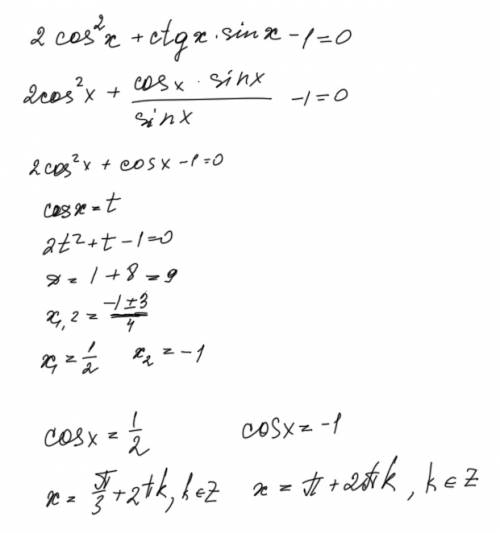 2 cos²x + ctgx · sinx - 1 = 0
2cos²x + (cosx · sinx)/(sinx) - 1 = 0
2cos²x + cosx - 1 = 0
cosx = t
2t² + t - 1 = 0
D = 1 + 8 = 9
x₁,₂ = (-1 ± 3)/4
x₁ = 1/2 x₂ = -1
cosx = 1/2 cosx = -1
x = π/3 + 2πk, k ∈ Z x = π + 2πk, k ∈ Z